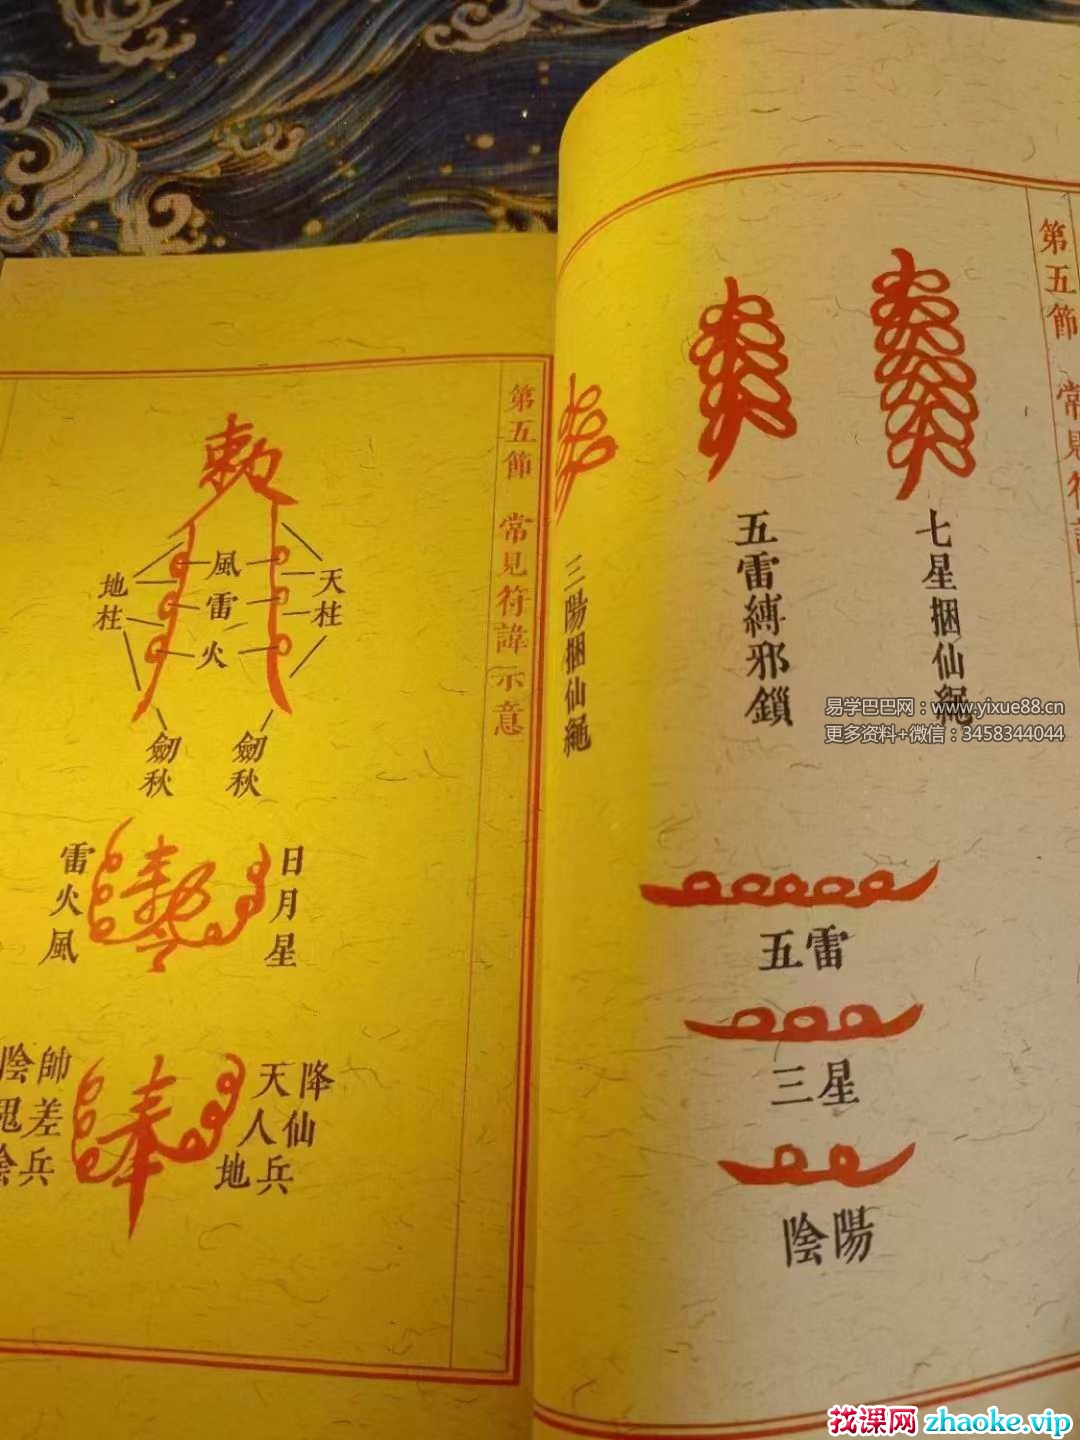 第五節 常見符諱示意
敕
風
雷
火
天柱
地柱
劍秋
劍秋
日月星
雷火風
敕令
奉
天降
人仙
地兵
陰帥
鬼差
陰兵
第五節 常見符諱
七星捆仙繩
五雷縛邪鎖
三陽捆仙繩
五雷
三星
陰陽
易学巴巴网：www.yixue88.cn
更多资料+微信：3458344044
找课网 zhaoke.vip